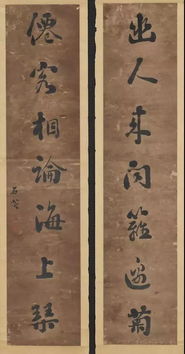 幽人来問籬邊菊
僊客相論海上琴
石菴